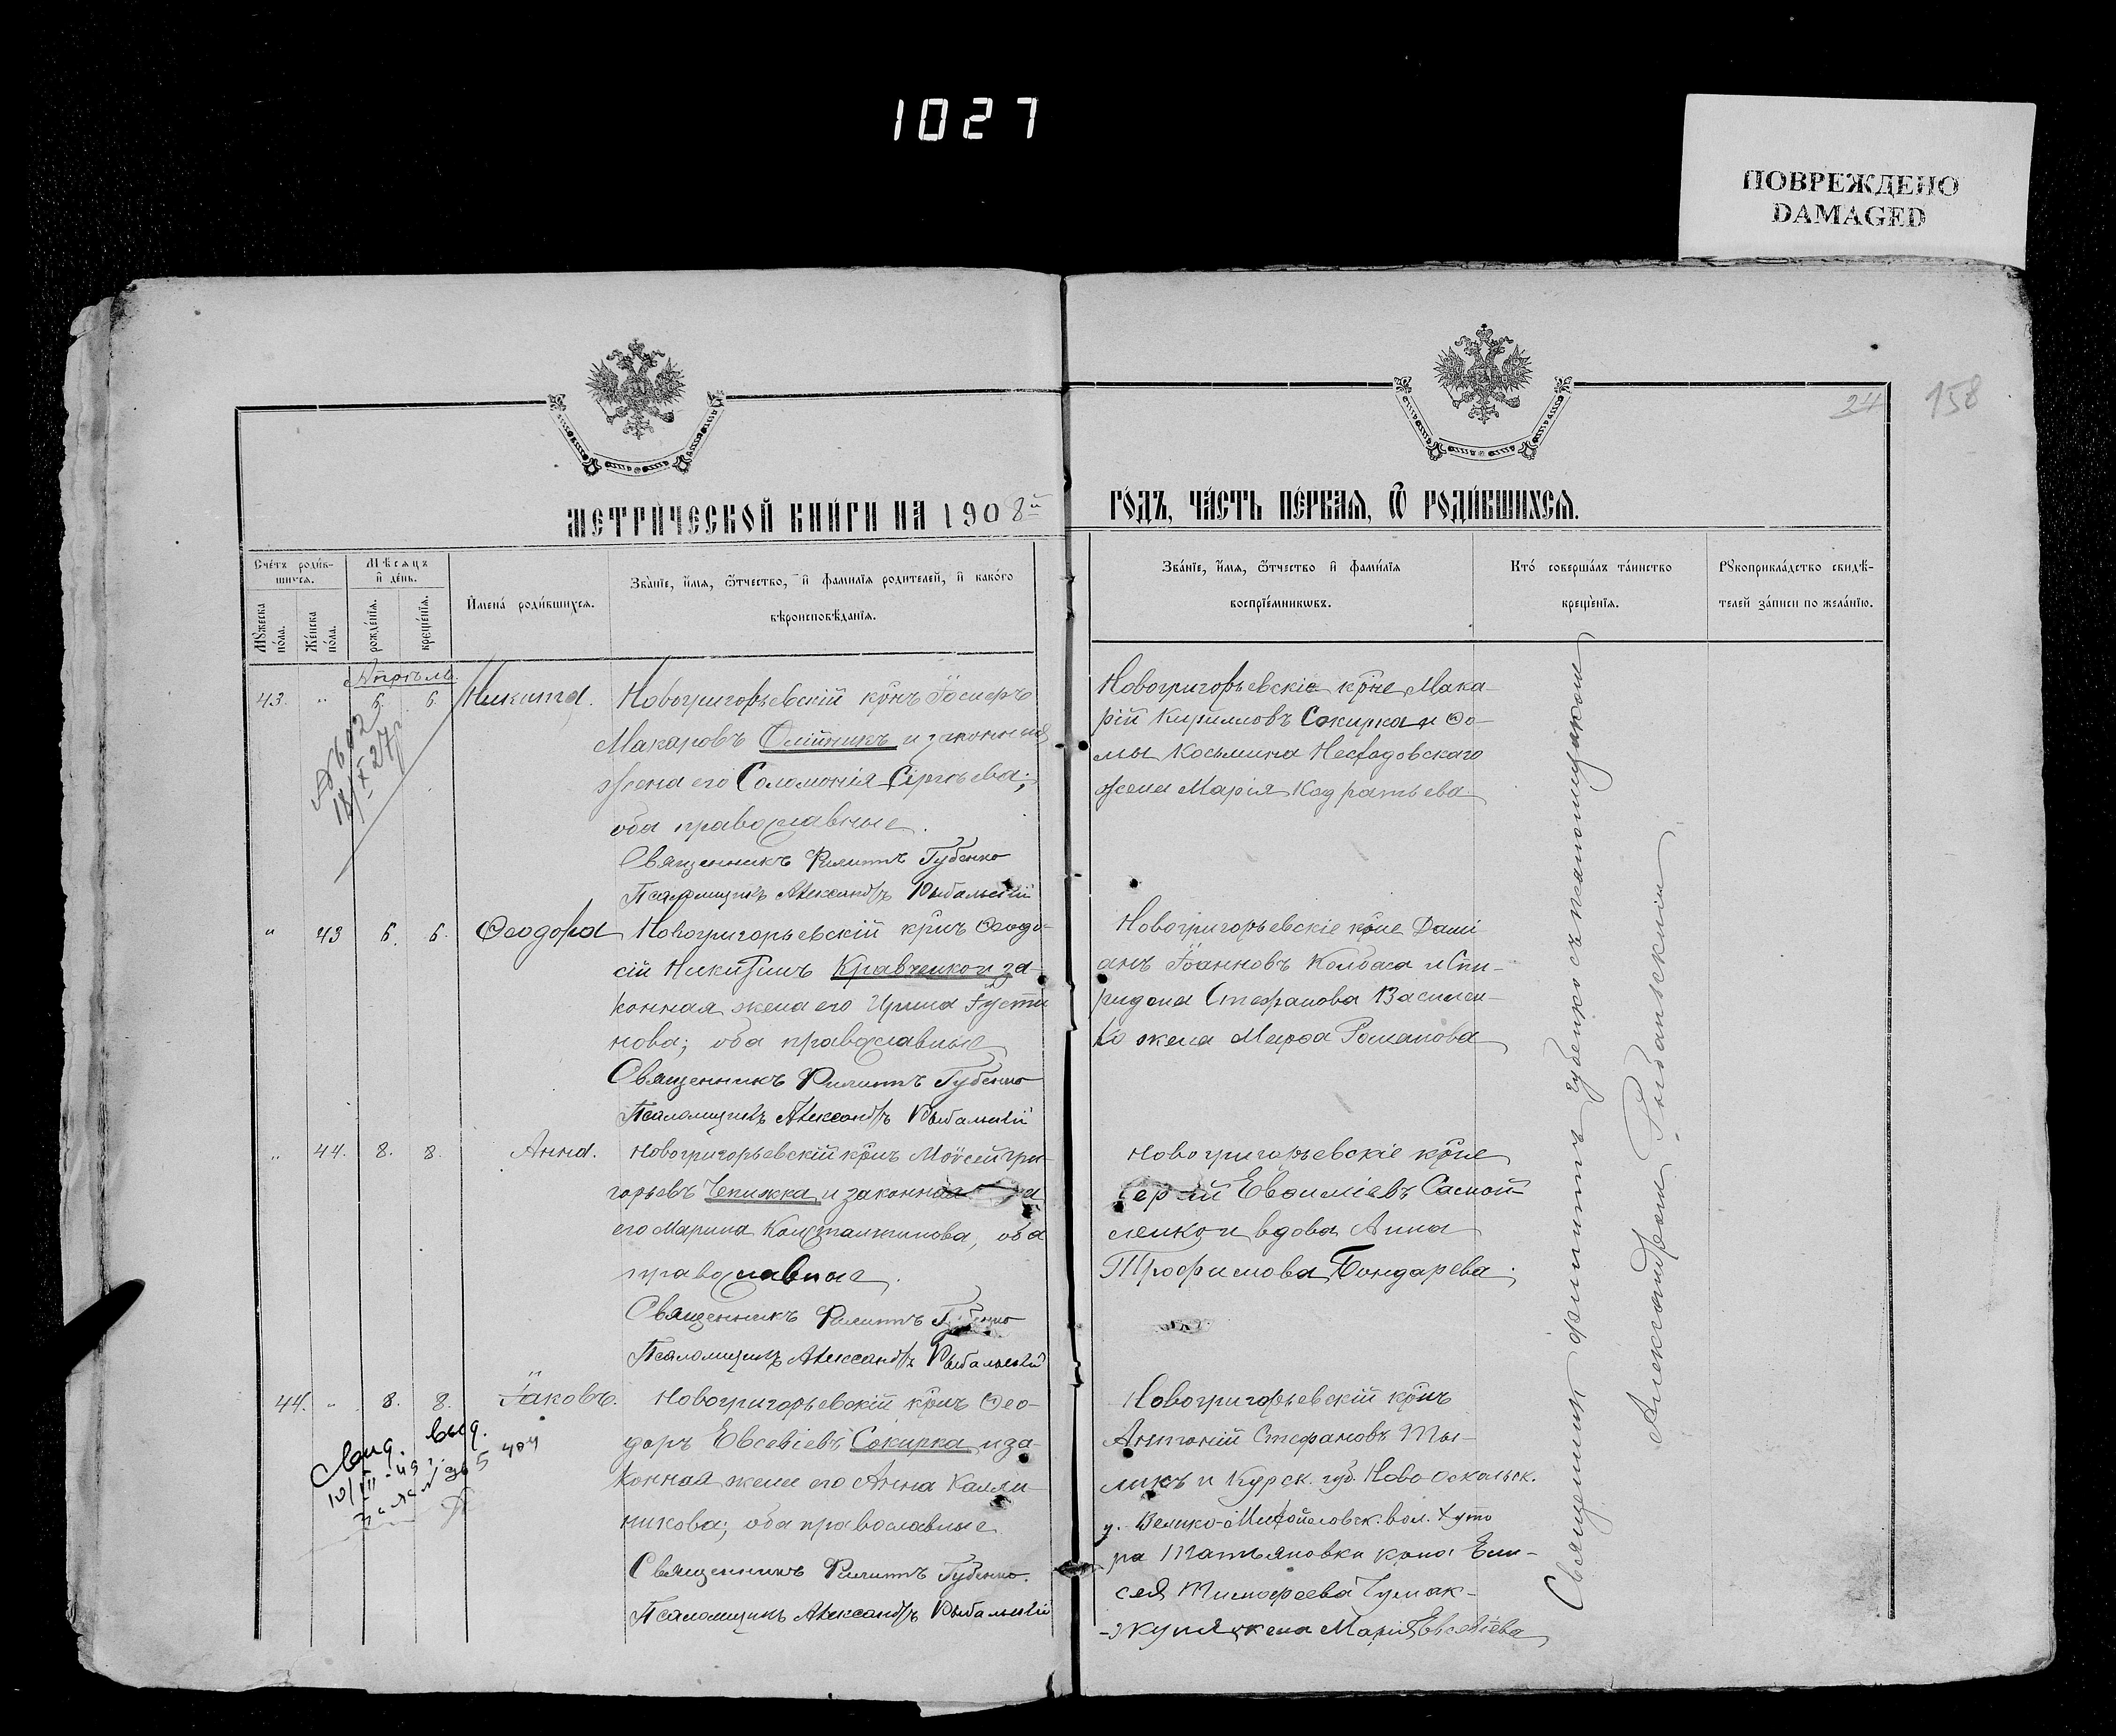 1027
ПОВРЕЖДЕНО
DAMAGED
24
158
МЕТРИ́ЧЕСКОЙ КНИ́ГИ НА 1908й
ГО́ДЪ, ЧА́СТЬ ПЕ́РВАЯ, Ѿ РОДИ́ВШИХСЯ.
Сче́тъ роди́в-
шихся.
Мѣсяцъ
и҆ де́нь.
Мꙋжеска
по́ла.
Же́нска
по́ла.
рожде́нія.
креще́нія.
И҆мена́ роди́вшихся.
Зва́нїе, и҆́мя, ѿтчество, и҆ фами́лїя родителей, и҆ како́го
вѣроисповѣ́данїя.
Зва́нїе, и҆́мя, ѿтчество и҆ фами́лїя
воспрїе́мникѡвъ.
Кто́ соверша́лъ та́инство
креще́нїя.
Рꙋкоприкла́дство свидѣ́-
телей за́писи по жела́нїю.
Апрѣль.
43. " 6. 6. Никита. Новогригорьевскій крнъ Іосифъ
Макаровъ Олійникъ и законная
жена его Соломонія Сергѣева;
оба православные.
Священникъ Филиппъ Губенко
Псаломщикъ Александръ Рыбальскій
Новогригорьевскіе крне Мака-
рій Кирилловъ Сокирка и Ѳо-
мы Косьмина
жена Марія Кодратьева
" 43 6. 6. Ѳеодора Новогригорьевскій крнъ Ѳеодо-
сій Никитинъ Кравченко и за-
конная жена его Ирина Іусти
нова; оба православные
Священникъ Филиппъ Губенко
Псаломщикъ Александръ Рыбальскій
Новогригорьевскіе крне Дамі
анъ Іоанновъ Колбаса и Спи-
ридона Стефанова Василен-
ко жена Марѳа Романова
" 44. 8. 8. Анна. Новогригорьевскій крнъ Моѵсей Гри-
горьевъ Чепижка и законная
его Марина Константинова, оба
православные.
Священникъ Филиппъ Губенко
Псаломщикъ Александръ Рыбальскій
Новогригорьевскіе крне
Евѳиміевъ Самой-
ленко и вдова Анна
Трофимова Бондарева.
44. " 8. 8. Іаковъ. Новогригорьевскій крнъ Ѳео-
доръ Евсевіевъ Сокирка и за-
конная жена его Анна Калли-
никова; оба православные.
Священникъ Филиппъ Губенко.
Псаломщикъ Александръ Рыбальскій
Новогригорьевскій крнъ
Антоній Стефановъ
и Курск. губ. Ново-Оскольск.
у. вол. Хуто
ра Татьяновки крна Ели-
сея Тимофеева
жена Марія Евсевіева
Священник Филиппъ Губенко съ псаломщиком
Александром Рыбальским